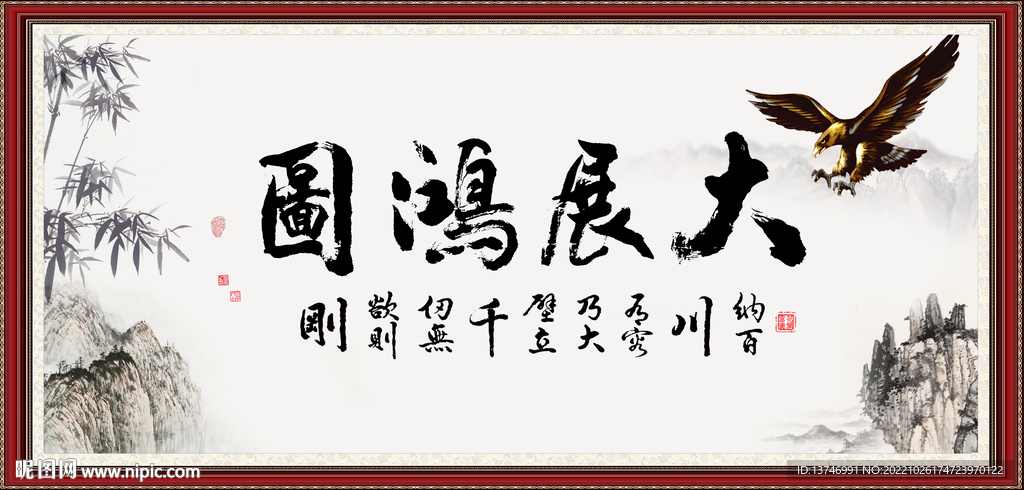 大展鴻圖
納百川有容乃大壁立千仞無欲則剛
昵图网 www.nipic.com
ID:13746991 NO:20221026174723970122